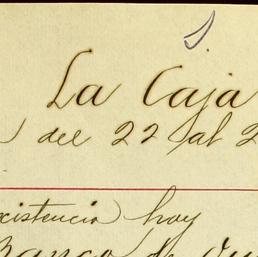 La Caja
del 22 al 2
existencia hoy
Banco de